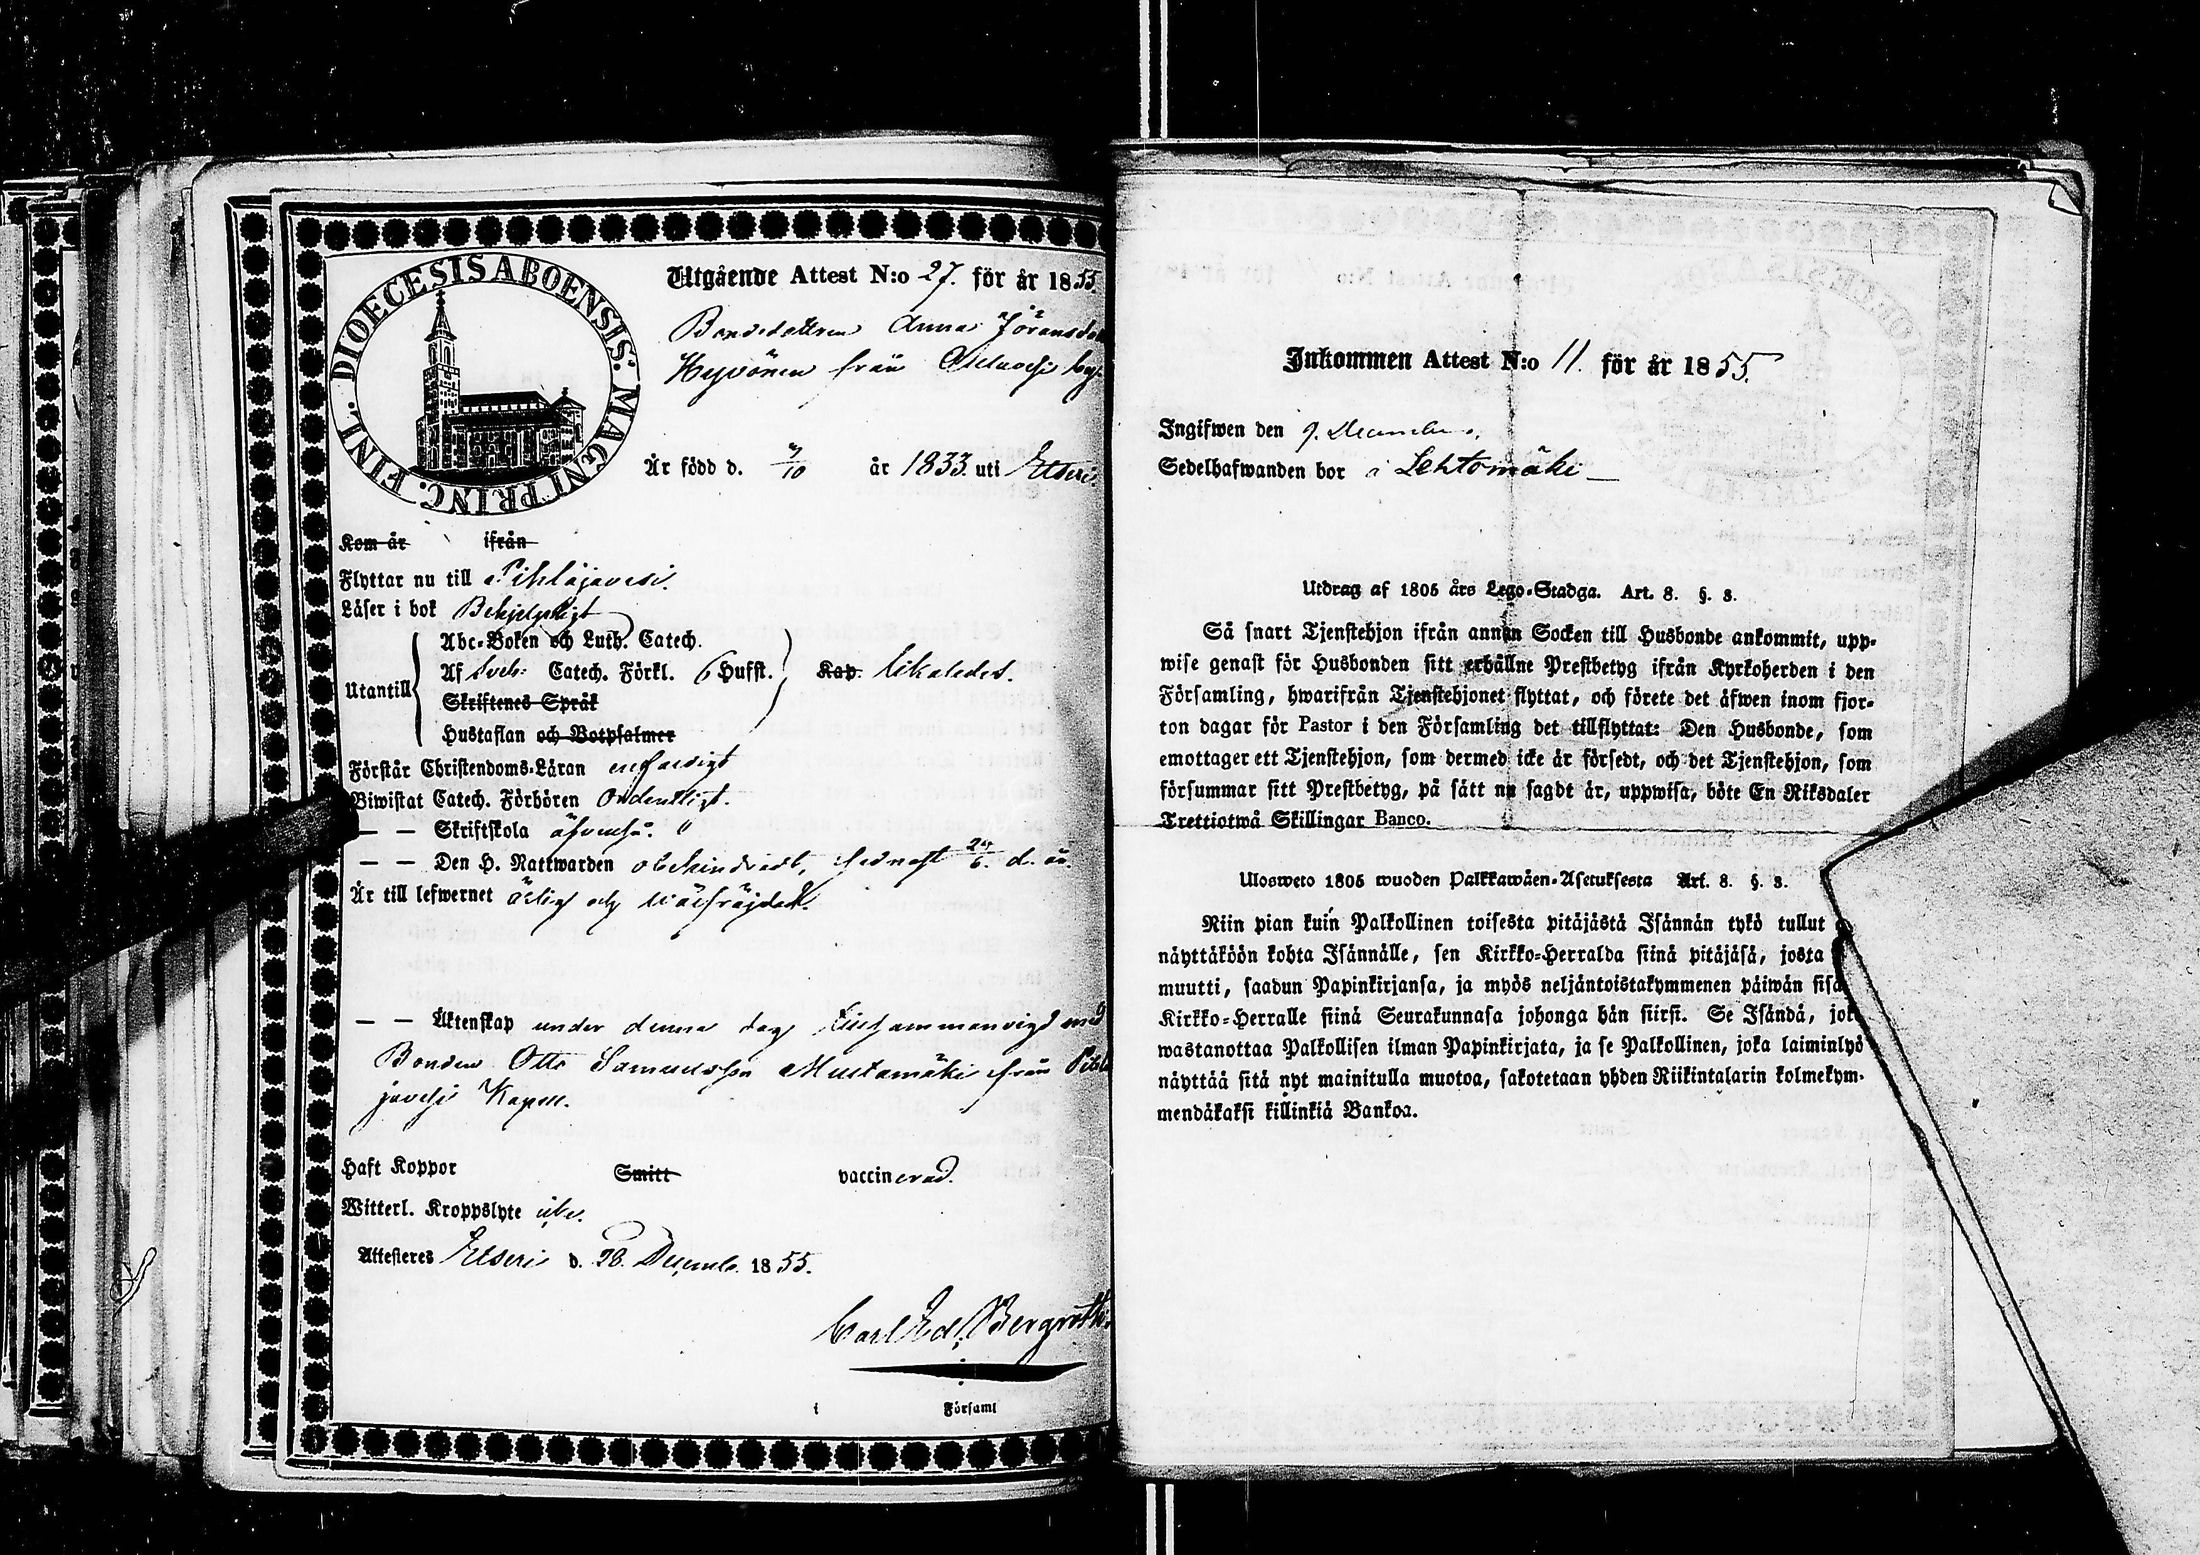 DIOECESIS ABOENSIS: MAGNI PRINC. FINL.
Utgående Attest N:o 27. för år 1855.
Bondedottren Anna Jöransdo
Hyvönen från
Är född d. 7/10 år 1833. uti Etseri.
Kom år ifrån
Flyttar nu till Pihlajavesi.
Läser i bok Behjelpligt
Abc-Boken och Luth. Catech.
Utantill Af Sveb: Catech. Förkl. 6 Hufst. Kap. likaledes.
Skriftenes Språk
Hustaflan och Botpsalmer
Förstår Christendoms-Läran enfaldigt
Biwistat Catech. Förhören Ordentligt.
— — Skriftskola äfvenså.
— — Den H. Nattwarden obehindradt, sednast 24/6. d. år.
Är till lefwernet ärlig och wälfräjdad.
— — Äktenskap under denna dag sammanvigd med
Bonden Otto Samuelsson Mustamäki från Pihla
javesi Kapell.
Haft Koppor Smitt vaccinerad.
Witterl. Kroppslyte utan.
Attesteres Etseri d. 28. Decemb. 1855.
Carl Ed. Bergroth.
i Församl
Inkommen Attest N:o 11. för år 1855.
Ingifwen den 9. December.
Sedelhafwanden bor i Lehtomäki
Utdrag af 1805 års Lego-Stadga. Art. 8. §. 3.
Så snart Tjenstehjon ifrån annan Socken till Husbonde ankommit, upp-
wise genast för Husbonden sitt erhållne Prestbetyg ifrån Kyrkoherden i den
Församling, hwarifrån Tjenstehjonet flyttat, och förete det äfwen inom fjor-
ton dagar för Pastor i den Församling det tillflyttat: Den Husbonde, som
emottager ett Tjenstehjon, som dermed icke är försedt, och det Tjenstehjon, som
försummar sitt Prestbetyg, på sätt nu sagdt är, uppwisa, böte En Riksdaler
Trettiotwå Skillingar Banco.
Ulosweto 1805 wuoden Palkkawäen-Asetuksesta Art. 8. §. 3.
Niin pian kuin Palkollinen toisesta pitäjästä Isännän tykö tullut
näyttäköön kohta Isännälle, sen Kirkko-Herralda siinä pitäjäsä, josta
muutti, saadun Papinkirjansa, ja myös neljäntoistakymmenen päiwän sisä
Kirkko-Herralle siinä Seurakunnasa johonga hän siirsi. Se Isändä, joka
wastanottaa Palkollisen ilman Papinkirjata, ja se Palkollinen, joka laiminlyö
näyttää sitä nyt mainitulla muotoa, sakotetaan yhden Riikintalarin kolmekym-
mendäkaksi killinkiä Bankoa.